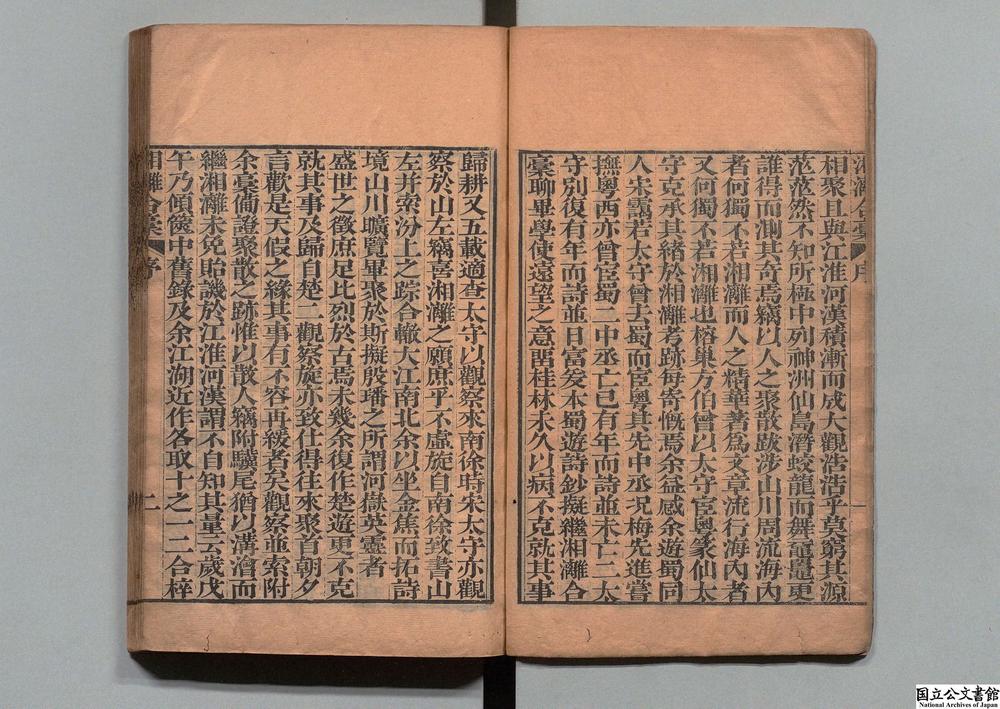 相聚且與江淮河漢積漸而成大觀浩浩乎莫窮其源
茫茫然不知所極中列神洲仙島潛蛟龍而舞黿鼉更
誰得而測其奇焉竊以人之聚散跋涉山川周流海內
者何獨不若湘灕而人之精華著為文章流行海內者
又何獨不若湘灕也榕巢方伯曾以太守宦粵篆仙太
守克承其緒於湘灕考跡每寄慨焉余益感余遊蜀同
人宋靄若太守曾去蜀而宦粵其先中丞況梅先進嘗
撫粵西亦曾宦蜀二中丞亡已有年而詩並未亡二太
守別復有年而詩並日富爰本蜀遊詩鈔擬繼湘灕合
稾聊畢學使遠望之意留桂林未久以病不克就其事
歸耕又五載適查太守以觀察來南徐時宋太守亦觀
察於山左竊喜湘灕之願庶乎不虛旋自南徐致書山
左并索汾上之踪合轍大江南北余以坐金焦而拓詩
境山川曠覽畢聚於斯擬殷璠之所謂河獄英靈者
盛世之徵庶足比烈於古焉未幾余復作楚遊更不克
就其事及歸自楚二觀察旋亦致仕得往來聚首朝夕
言歡是天假之緣其事有不容再緩者矣觀察並索附
余稾俻證聚散之跡惟以散人竊附驥尾猶以溝澮而
繼湘灕未免貽譏於江淮河漢謂不自知其量云歲戊
午乃傾篋中舊錄及余江湖近作各取十之一二合梓
湘灕合稾
序
二
国立公文書館
National Archives of Japan